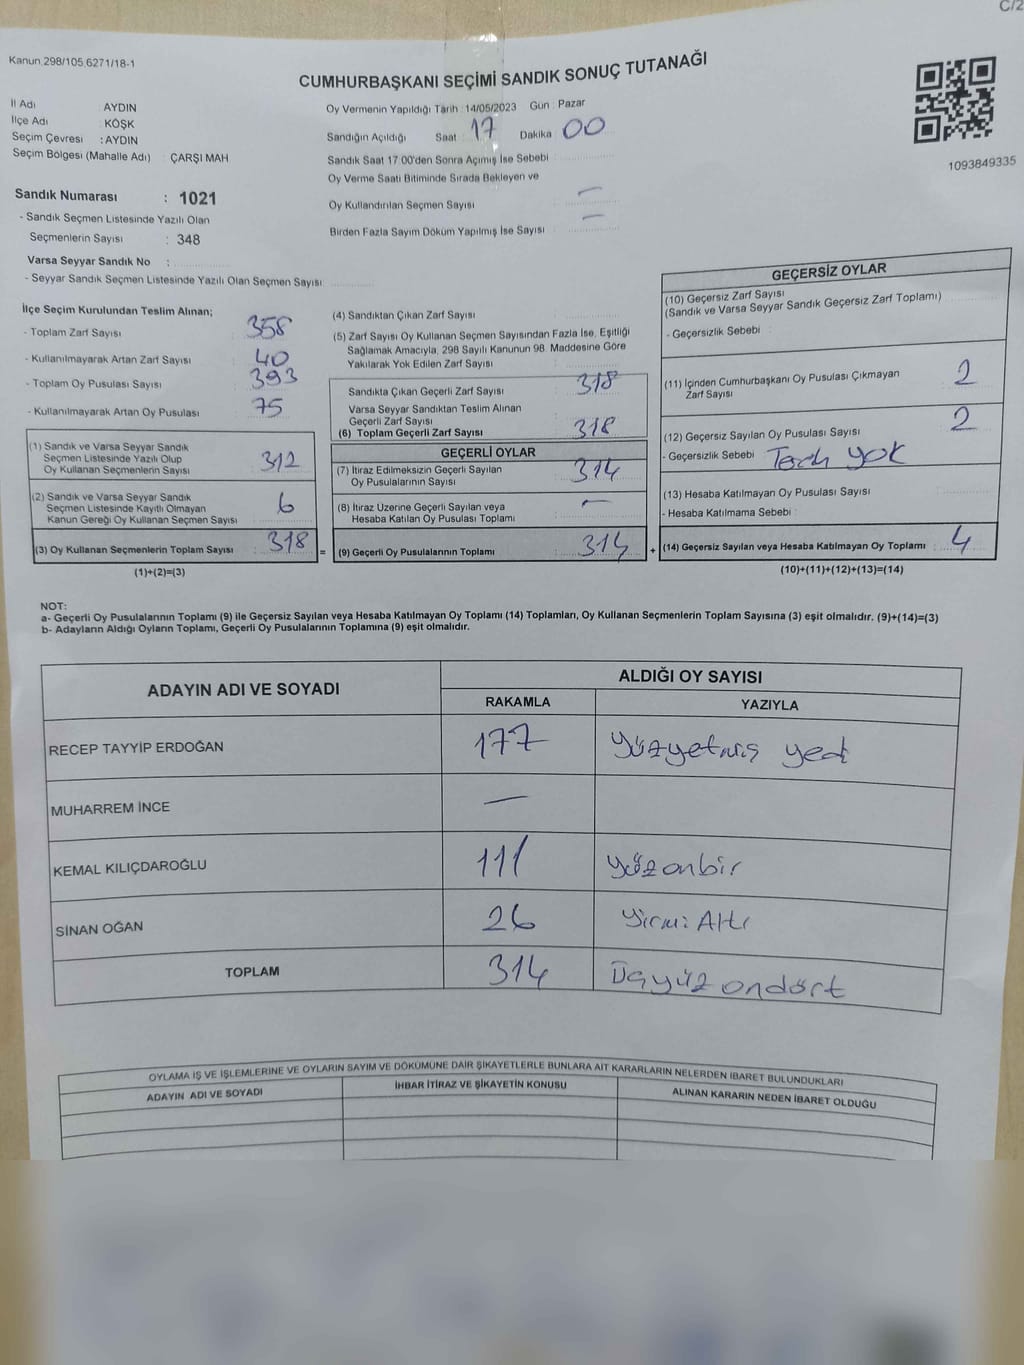 C/2
Kanun 298/105,6271/18-1
CUMHURBAŞKANI SEÇİMİ SANDIK SONUÇ TUTANAĞI
İl Adı AYDIN
İlçe Adı KÖŞK
Seçim Çevresi : AYDIN
Seçim Bölgesi (Mahalle Adı) ÇARŞI MAH
Sandık Numarası : 1021
- Sandık Seçmen Listesinde Yazılı Olan
Seçmenlerin Sayısı : 348
Varsa Seyyar Sandık No :
- Seyyar Sandık Seçmen Listesinde Yazılı Olan Seçmen Sayısı
Oy Vermenin Yapıldığı Tarih : 14/05/2023 Gün : Pazar
Sandığın Açıldığı Saat : 17 Dakika : 00
Sandık Saat 17.00'den Sonra Açımış İse Sebebi
Oy Verme Saati Bitiminde Sırada Bekleyen ve
Oy Kullandırılan Seçmen Sayısı : —
Birden Fazla Sayım Döküm Yapılmış İse Sayısı : —
1093849335
İlçe Seçim Kurulundan Teslim Alınan;
- Toplam Zarf Sayısı : 358
- Kullanılmayarak Artan Zarf Sayısı : 40
- Toplam Oy Pusulası Sayısı : 393
- Kullanılmayarak Artan Oy Pusulası : 75
(1) Sandık ve Varsa Seyyar Sandık
Seçmen Listesinde Yazılı Olup
Oy Kullanan Seçmenlerin Sayısı : 312
(2) Sandık ve Varsa Seyyar Sandık
Seçmen Listesinde Kayıtlı Olmayan
Kanun Gereği Oy Kullanan Seçmen Sayısı : 6
(3) Oy Kullanan Seçmenlerin Toplam Sayısı : 318
(1)+(2)=(3)
(4) Sandıktan Çıkan Zarf Sayısı :
(5) Zarf Sayısı Oy Kullanan Seçmen Sayısından Fazla İse, Eşitliği
Sağlamak Amacıyla, 298 Sayılı Kanunun 98. Maddesine Göre
Yakılarak Yok Edilen Zarf Sayısı :
Sandıkta Çıkan Geçerli Zarf Sayısı : 318
Varsa Seyyar Sandıktan Teslim Alınan
Geçerli Zarf Sayısı
(6) Toplam Geçerli Zarf Sayısı : 318
GEÇERLİ OYLAR
(7) İtiraz Edilmeksizin Geçerli Sayılan
Oy Pusulalarının Sayısı : 314
(8) İtiraz Üzerine Geçerli Sayılan veya
Hesaba Katılan Oy Pusulası Toplamı : —
= (9) Geçerli Oy Pusulalarının Toplamı : 314 +
GEÇERSİZ OYLAR
(10) Geçersiz Zarf Sayısı
(Sandık ve Varsa Seyyar Sandık Geçersiz Zarf Toplamı)
- Geçersizlik Sebebi :
(11) İçinden Cumhurbaşkanı Oy Pusulası Çıkmayan
Zarf Sayısı : 2
(12) Geçersiz Sayılan Oy Pusulası Sayısı : 2
- Geçersizlik Sebebi : Terch yok
(13) Hesaba Katılmayan Oy Pusulası Sayısı :
- Hesaba Katılmama Sebebi :
(14) Geçersiz Sayılan veya Hesaba Katılmayan Oy Toplamı : 4
(10)+(11)+(12)+(13)=(14)
NOT:
a- Geçerli Oy Pusulalarının Toplamı (9) ile Geçersiz Sayılan veya Hesaba Katılmayan Oy Toplamı (14) Toplamları, Oy Kullanan Seçmenlerin Toplam Sayısına (3) eşit olmalıdır. (9)+(14)=(3)
b- Adayların Aldığı Oyların Toplamı, Geçerli Oy Pusulalarının Toplamına (9) eşit olmalıdır.
ADAYIN ADI VE SOYADI ALDIĞI OY SAYISI
RAKAMLA YAZIYLA
RECEP TAYYİP ERDOĞAN 177 Yüzyetmiş yedi
MUHARREM İNCE —
KEMAL KILIÇDAROĞLU 111 Yüzonbir
SİNAN OĞAN 26 Yirmi Altı
TOPLAM 314 Üçyüz ondört
OYLAMA İŞ VE İŞLEMLERİNE VE OYLARIN SAYIM VE DÖKÜMÜNE DAİR ŞİKAYETLERLE BUNLARA AİT KARARLARIN NELERDEN İBARET BULUNDUKLARI
ADAYIN ADI VE SOYADI İHBAR İTİRAZ VE ŞİKAYETİN KONUSU ALINAN KARARIN NEDEN İBARET OLDUĞU